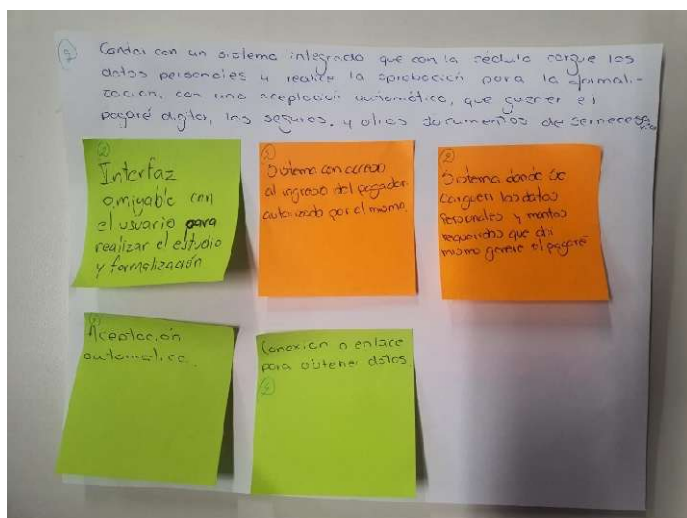 Contar con un sistema integrado que con la cédula cargue los
datos personales y realice la aprobación para la formali-
zación, con una aceptación automática, que genere el
pagaré digital, los seguros, y otros documentos de ser necesario
2
Interfaz
amigable con
el usuario para
realizar el estudio
y formalización
Sistema con acceso
al ingreso del pagador
autorizado por el mismo.
2
Sistema donde se
carguen los datos
personales y montos
requeridos que
mismo genere el pagaré
Aceptación
automática.
Conexión o enlace
para obtener datos